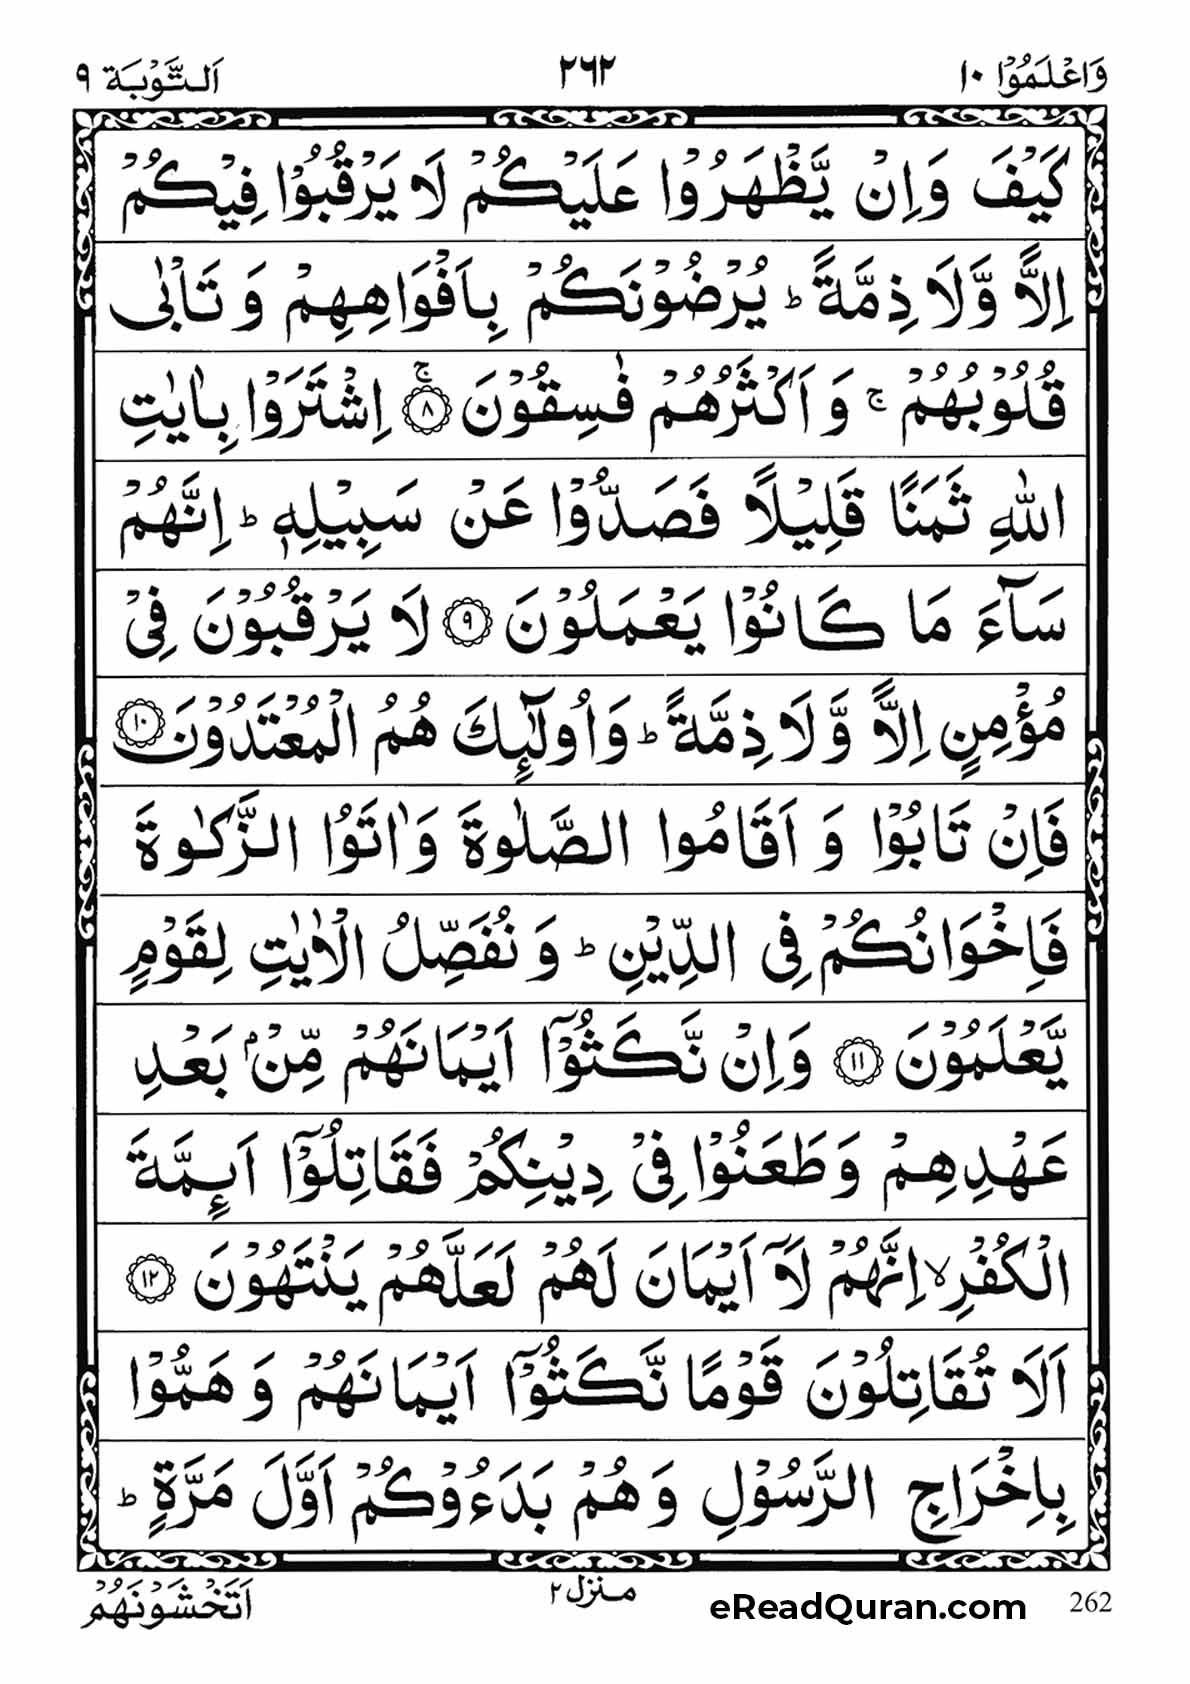 وَاعْلَمُوْا ١٠ ٢٦٢ اَلتَّوْبَة ٩
كَيْفَ وَاِنْ يَّظْهَرُوْا عَلَيْكُمْ لَا يَرْقُبُوْا فِيْكُمْ
اِلًّا وَّلَا ذِمَّةً ؕ يُرْضُوْنَكُمْ بِاَفْوَاهِهِمْ وَ تَاْبٰى
قُلُوْبُهُمْ ۚ وَ اَكْثَرُهُمْ فٰسِقُوْنَ ۚ ﴿٨﴾ اِشْتَرَوْا بِاٰيٰتِ
اللّٰهِ ثَمَنًا قَلِيْلًا فَصَدُّوْا عَنْ سَبِيْلِهٖ ؕ اِنَّهُمْ
سَآءَ مَا كَانُوْا يَعْمَلُوْنَ ﴿٩﴾ لَا يَرْقُبُوْنَ فِيْ
مُؤْمِنٍ اِلًّا وَّ لَا ذِمَّةً ؕ وَ اُولٰٓئِكَ هُمُ الْمُعْتَدُوْنَ ﴿١٠﴾
فَاِنْ تَابُوْا وَ اَقَامُوا الصَّلٰوةَ وَ اٰتَوُا الزَّكٰوةَ
فَاِخْوَانُكُمْ فِي الدِّيْنِ ؕ وَ نُفَصِّلُ الْاٰيٰتِ لِقَوْمٍ
يَّعْلَمُوْنَ ﴿١١﴾ وَاِنْ نَّكَثُوْۤا اَيْمَانَهُمْ مِّنْۢ بَعْدِ
عَهْدِهِمْ وَ طَعَنُوْا فِيْ دِيْنِكُمْ فَقَاتِلُوْۤا اَئِمَّةَ
الْكُفْرِ ۙ اِنَّهُمْ لَاۤ اَيْمَانَ لَهُمْ لَعَلَّهُمْ يَنْتَهُوْنَ ﴿١٢﴾
اَلَا تُقَاتِلُوْنَ قَوْمًا نَّكَثُوْۤا اَيْمَانَهُمْ وَ هَمُّوْا
بِاِخْرَاجِ الرَّسُوْلِ وَ هُمْ بَدَءُوْكُمْ اَوَّلَ مَرَّةٍ ؕ
منزل ٢ اَتَخْشَوْنَهُمْ
eReadQuran.com 262